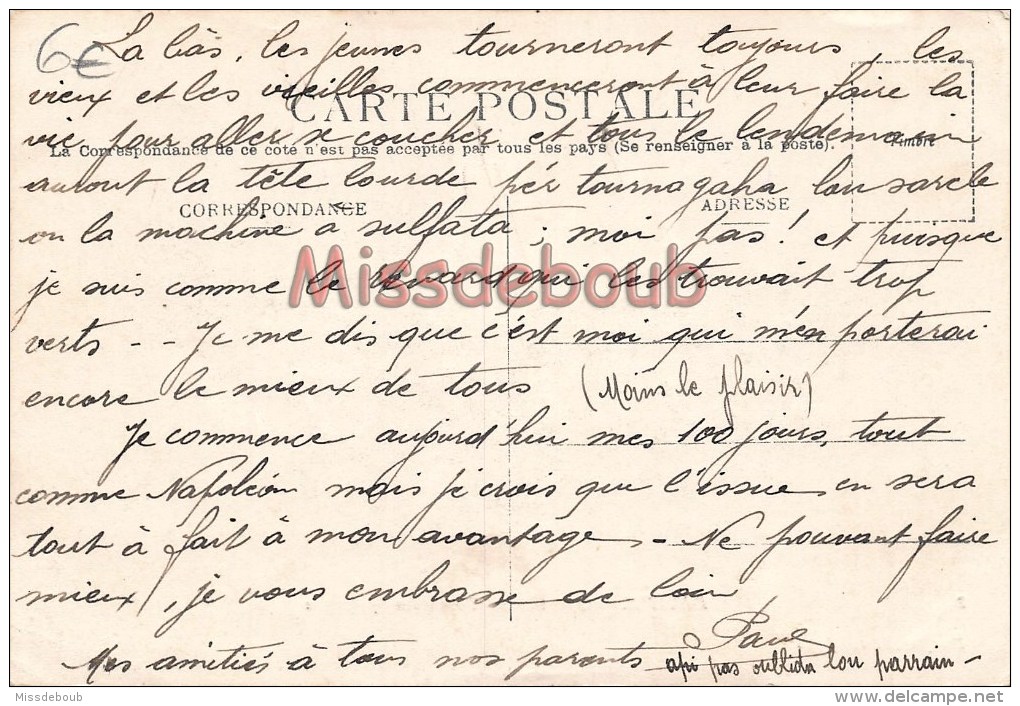 6€
La bas, les jeunes tourneront toujours, les
vieux et les vieilles commenceront à leur faire la
CARTE POSTALE
vie pour aller se coucher et tous le lendemain
La Correspondance de ce coté n'est pas acceptée par tous les pays (Se renseigner à la poste).
Timbre
auront la tête lourde per tournagaha lou sarcle
CORRESPONDANCE
ADRESSE
ou la machine a sulfata; moi pas! et puisque
je suis comme le renard qui les trouvait trop
Missdeboub
verts - - Je me dis que c'est moi qui m'en porterai
encore le mieux de tous (Moins le plaisir)
Je commence aujourd'hui mes 100 jours, tout
comme Napoléon mais je crois que l'issue en sera
tout à fait à mon avantage - Ne pouvant faire
mieux, je vous embrasse de loin
Paul
Mes amitiés à tous nos parents
api pas oublida lou parrain -
Missdeboub
www.delcampe.net